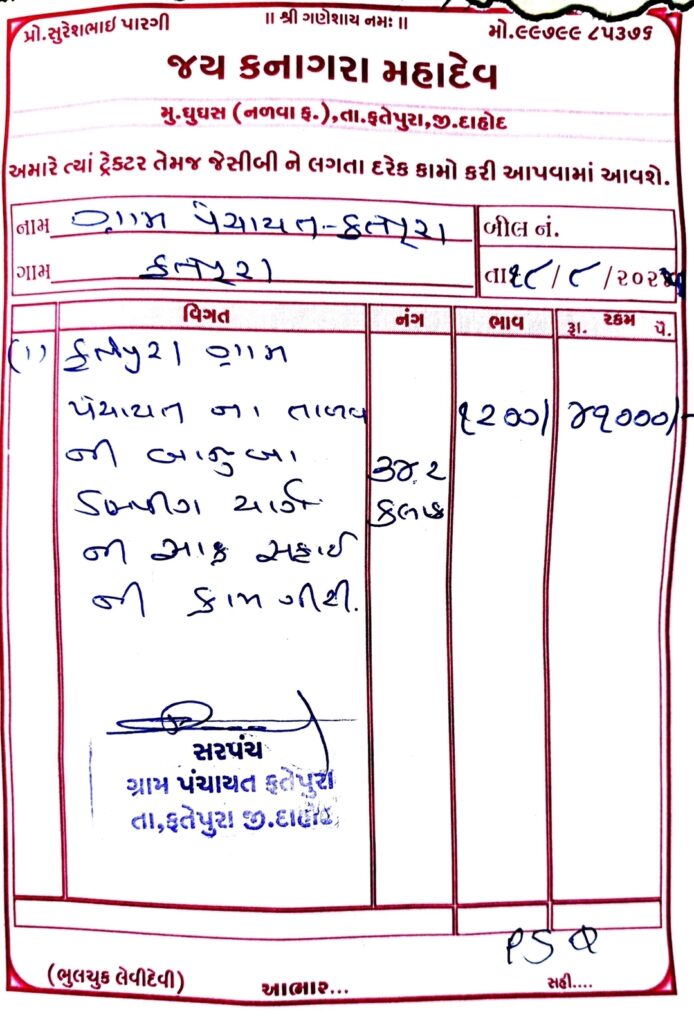 પ્રો.સુરેશભાઇ પારગી ॥ શ્રી ગણેશાય નમઃ ॥ મો.૯૯૭૯૯ ૮૫૩૭૬
જય કનાગરા મહાદેવ
મુ.ઘુઘસ (નળવા ફ.),તા.ફતેપુરા,જી.દાહોદ
અમારે ત્યાં ટ્રેક્ટર તેમજ જેસીબી ને લગતા દરેક કામો કરી આપવામાં આવશે.
નામ ગ્રામ પંચાયત-ફતેપુરા બીલ નં.
ગામ ફતેપુરા તા૧૮/૮/૨૦૨
વિગત નંગ ભાવ રૂા. રકમ પૈ.
(૧) ફતેપુરા ગ્રામ
પંચાયત ના તાળાવ ૧૨૦૦/ ૪૧૦૦૦/-
ની બાજુમા ૩૪.૨
ડમ્પીંગ યાર્ડ કલાક
ની સાફ સફાઈ
ની કામગીરી.
સરપંચ
ગ્રામ પંચાયત ફતેપુરા
તા,ફતેપુરા જી.દાહોદ
(ભુલચુક લેવીદેવી) આભાર... સહી....